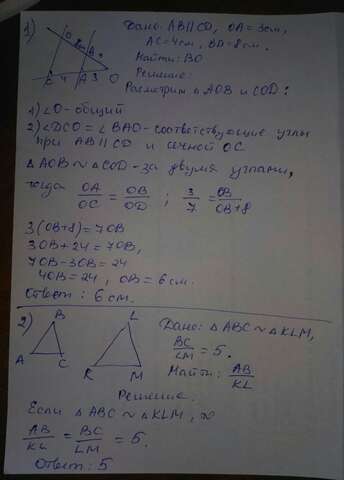 1)
Дано: AB||CD, OA=3см,
AC=4см, BD=8см.
Найти: BO
Решение:
Расмотрим △AOB и COD:
1) ∠O-общий
2) ∠DCO = ∠BAO-соответствующие углы
при AB||CD и сечной OC
△AOB ~ △COD-за двумя углами,
тогда OA/OC = OB/OD ; 3/7 = OB/OB+8
3(OB+8)=7OB
3OB+24=7OB,
7OB-3OB=24
4OB=24, OB=6см.
Ответ: 6см.
2)
B
A C
L
K M
Дано: △ABC ~ △KLM,
BC/LM = 5.
Найти: AB/KL
Решение:
Если △ABC ~ △KLM, то
AB/KL = BC/LM = 5.
Ответ: 5